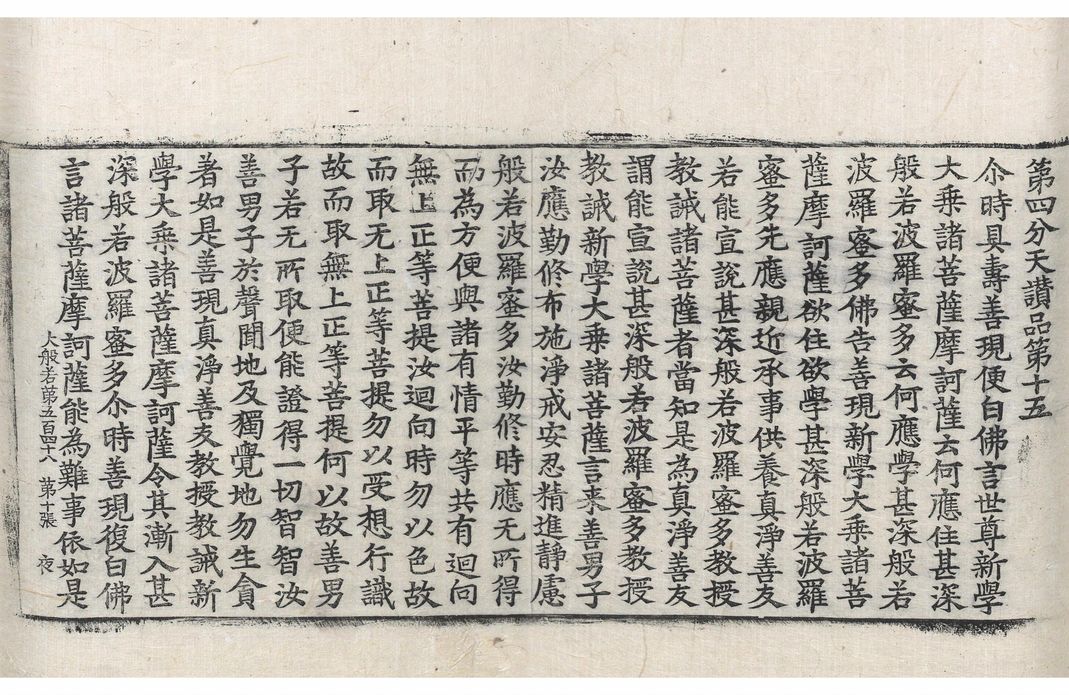 第四分天讃品第十五
尒時具壽善現便白佛言世尊新學
大乗諸菩薩摩訶薩云何應住甚深
般若波羅蜜多云何應學甚深般若
波羅蜜多佛告善現新學大乗諸菩
薩摩訶薩欲住欲學甚深般若波羅
蜜多先應親近承事供養真淨善友
若能宣說甚深般若波羅蜜多教授
教誡諸菩薩者當知是為真淨善友
謂能宣說甚深般若波羅蜜多教授
教誡新學大乗諸菩薩言来善男子
汝應勤修布施淨戒安忍精進靜慮
般若波羅蜜多汝勤修時應无所得
而為方便與諸有情平等共有迴向
無上正等菩提汝迴向時勿以色故
而取无上正等菩提勿以受想行識
故而取無上正等菩提何以故善男
子若无所取便能證得一切智智汝
善男子於聲聞地及獨覺地勿生貪
者如是善現真淨善友教授教誡新
學大乗諸菩薩摩訶薩令其漸入甚
深般若波羅蜜多尒時善現復白佛
言諸菩薩摩訶薩能為難事依如是
大般若第五百四十八 第十張 夜